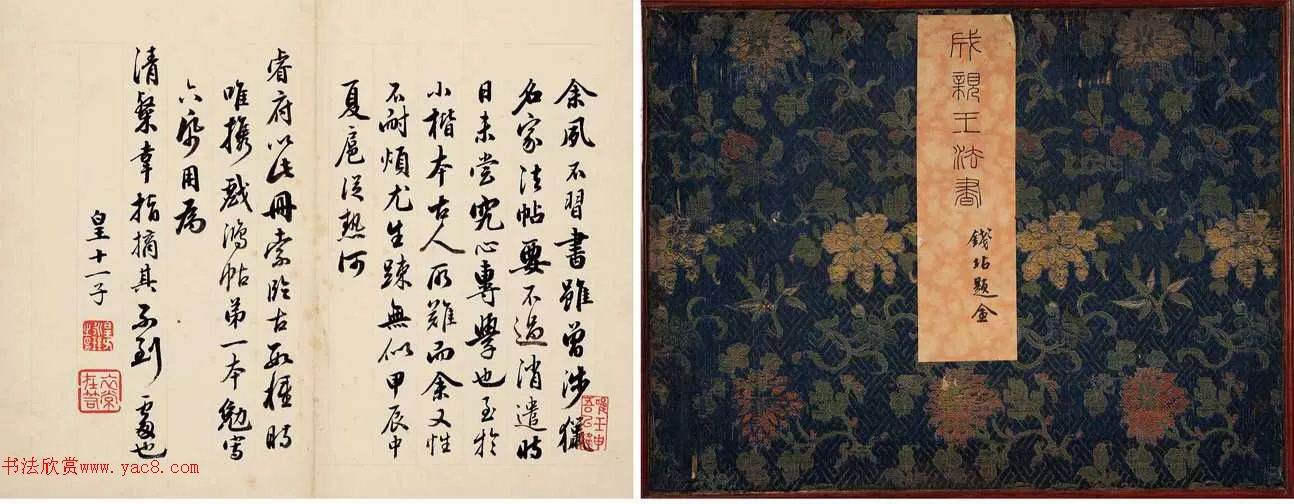 余夙不習書雖曾涉獵
名家法帖要不過消遣時
日未嘗究心專學也至於
小楷本古人所難而余又性
不耐煩尤生踈無似甲辰中
夏扈從熱河
睿府以此冊索臨古時
唯攜戲鴻帖第一本勉寫
六用為
清粲幸指摘其不到處也
皇十一子
成親王法書
錢坫題
书法欣赏www.yac8.com